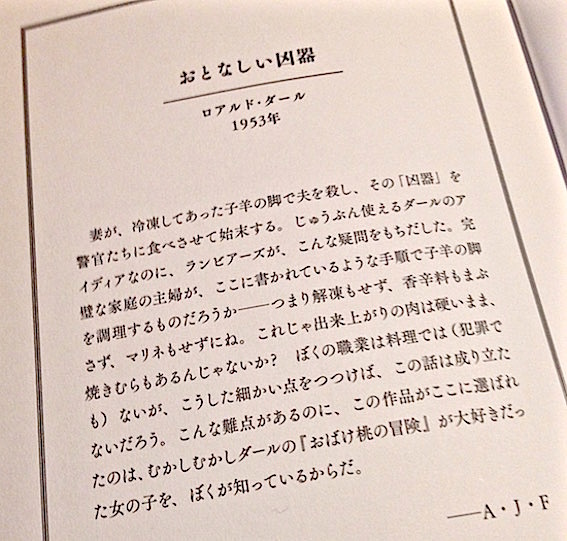 おとなしい凶器
ロアルド・ダール
1953年
妻が、冷凍してあった子羊の脚で夫を殺し、その「凶器」を
警官たちに食べさせて始末する。じゅうぶん使えるダールのア
イディアなのに、ランビアーズが、こんな疑問をもちだした。完
璧な家庭の主婦が、ここに書かれているような手順で子羊の脚
を調理するものだろうか――つまり解凍もせず、香辛料もまぶ
さず、マリネもせずにね。これじゃ出来上がりの肉は硬いまま、
焼きむらもあるんじゃないか? ぼくの職業は料理では(犯罪で
も)ないが、こうした細かい点をつつけば、この話は成り立た
ないだろう。こんな難点があるのに、この作品がここに選ばれ
たのは、むかしむかしダールの『おばけ桃の冒険』が大好きだっ
た女の子を、ぼくが知っているからだ。
――A・J・F